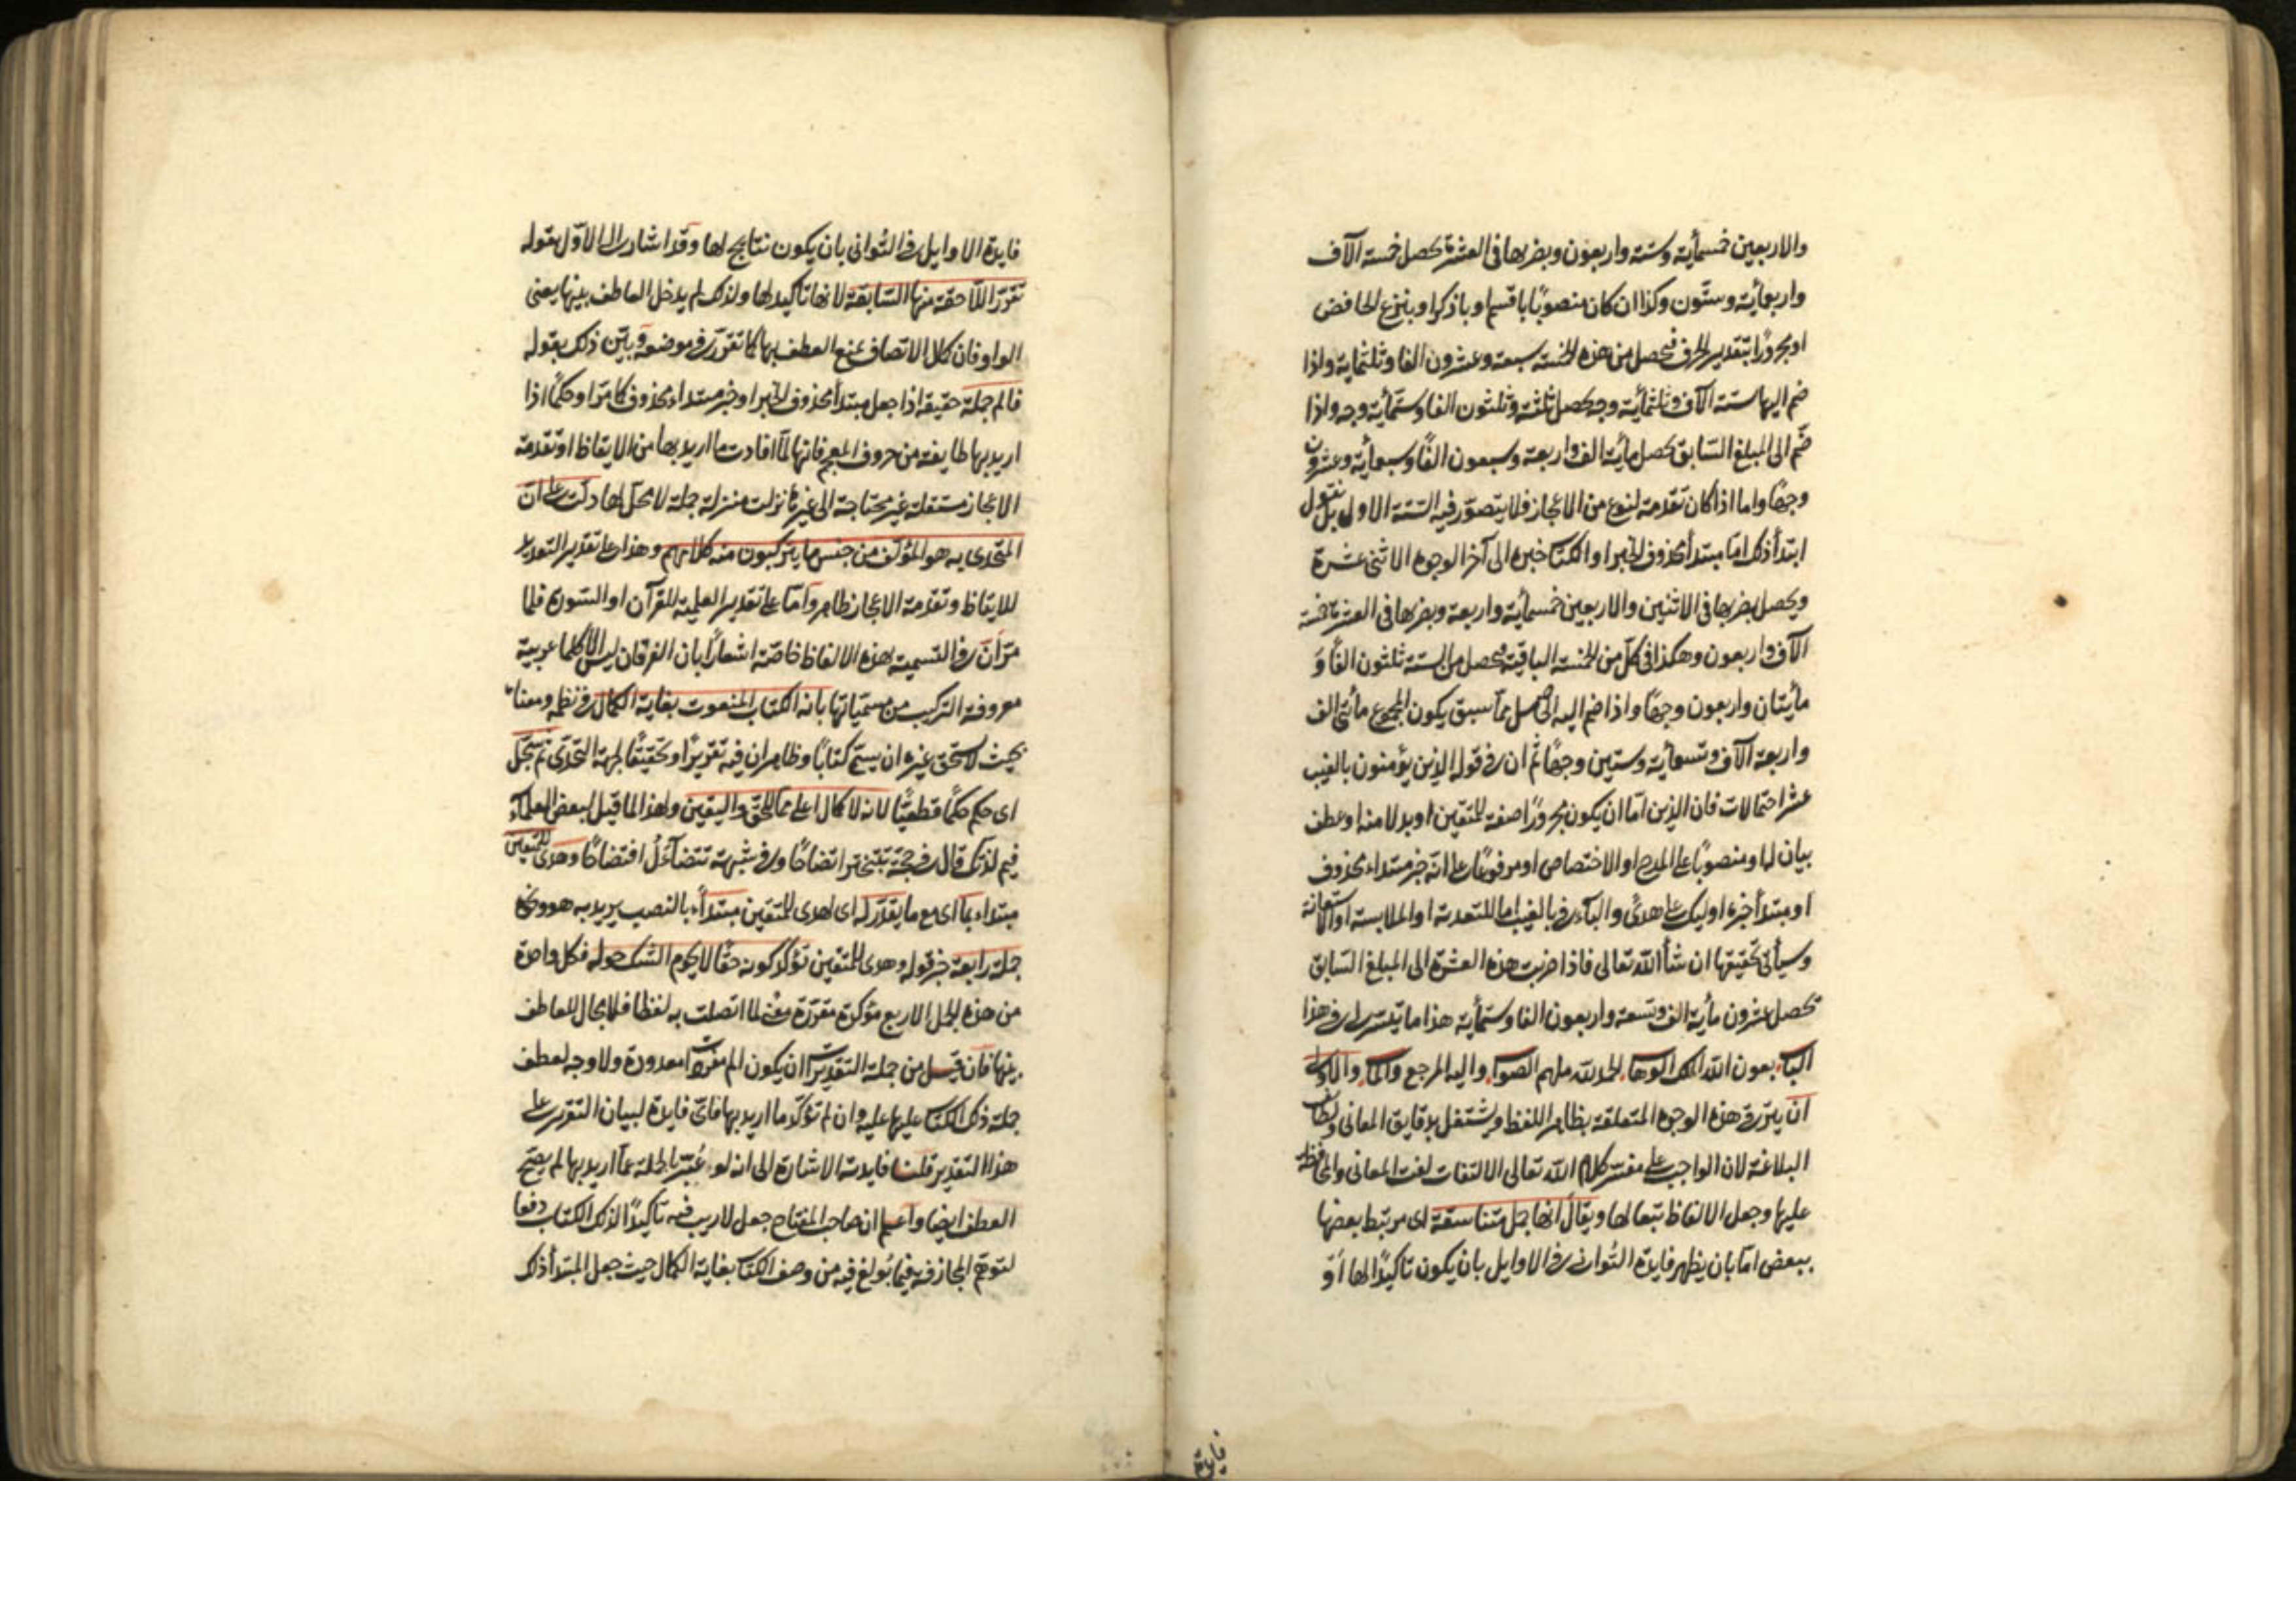 والاربعين خمسمأية وستة واربعون وبضربها فى العشرة يحصل خمسة الآف
واربعمأية وستّون وكذا ان كان منصوبًا باقسم او باذكر او بنزع الخافض
او مجرورًا بتقدير الحرف فيحصل من هذه الخمسة سبعة وعشرون الفا وثلثماية واذا
ضم اليها ستة الآف وثلثمأية وجه يحصل ثلثة وثلثون الفا وستمأية وجه واذا
ضمّ الى المبلغ السّابق يحصل مأية الف واربعة وسبعون الفًا وسبعمأية وعشرون
وجهًا واما اذا كان تقدمة لنوع من الاعجاز فلا يتصوّر فيه الستة الاول بل نقول
ابتدأ ذلك امّا مبتدأ محذوف الخبر او الكتاب خبره الى آخر الوجوه الاثنى عشرة
ويحصل بضربها فى الاثنين والاربعين خمسمأية واربعة وبضربها فى العشرة خمسة
الآف واربعون وهكذا فى كلّ من الخمسة الباقية فيحصل من الستة ثلثون الفًا وَ
مأيتان واربعون وجهًا واذا ضم اليه الحاصل ممّا سبق يكون المجموع مأتى الف
واربعة الآف وتسعمأية وستين وجهًا ثم ان فى قوله الذين يؤمنون بالغيب
عشر احتمالات فان الذين امّا ان يكون مجرورًا صفة للمتقين او بدلا منه او عطف
بيان له او منصوبًا على المدح او الاختصاص او مرفوعًا على انّه خبر مبتداء محذوف
او مبتدأ خبره اوليك على هدىً والبآء فى بالغيب اما للتعدية او الملابسة او الاستعانة
وسيأتى تحقيقها ان شأ اللّه تعالى فاذا ضربت هذه العشرة الى المبلغ السّابق
يحصل عشرون مأية الف وتسعة واربعون الفا وستمأية هذا ما تيسّر لى فى هذا
الباب بعون اللّه الملك الوهاب الحمد للّه ملهم الصواب واليه المرجع والمآب والاولى
ان يترك هذه الوجوه المتعلقة بظاهر اللفظ ويشتغل بدقايق المعانى ولطايف
البلاغة لان الواجب على مفسّر كلام اللّه تعالى الالتفات لفت المعانى والمحافظة
عليها وجعل الالفاظ تبعا لها ويقال انها جمل متناسقة اى مرتبط بعضها
ببعض امّا بان يظهر فايدة الثوانى فى الاوايل بان يكون تاكيدًا لها اَوْ
فايدة
فايدة الاوايل فى الثوانى بان يكون نتايج لها وقد اشار الى الاوّل بقوله
تقرّر اللّاحقة منها السّابقة لانها تاكيد لها ولذلك لم يدخل العاطف بينها يعنى
الواو فان كمال الاتصاف يمنع العطف بها كما تقرّر فى موضعه وبيّن ذلك بقوله
فالم جملة حقيقة اذا جعل مبتدأ محذوف الخبر او خبر مبتداء محذوف كما مرّ او حكمًا اذا
اريد بها طايفة من حروف المعجم فانها لمّا افادت ما اريد بها من الايقاظ او تقدمة
الاعجاز مستقلة غير محتاجة الى غيرها نزلت منزلة جملة لا محلّ لها دلّت على انّ
المتحدى به هو المؤلّف من جنس ما يتركبون منه كلامهم وهذا على تقدير التعديد
للايقاظ وتقدمة الاعجاز ظاهر وامّا على تقدير العلمية للقرآن او السّورة فلما
مرّ انّ فى التسمية بهذه الالفاظ خاصّة اشعارًا بان الفرقان ليس الا كلما عربية
معروفة التركيب من مسمياتها بانه الكتاب المنعوت بغاية الكمال فى نظمه ومعناه
بحيث لا يستحق غيره ان يسمّى كتابًا وظاهر ان فيه تقريرًا وتحقيقًا لجهة التحدّى ثم سجّل
اى حكم حكمًا قطعيًا لانه لا كمال اعلى ممّا للحق واليقين ولهذا لما قيل لبعض العلمآء
فيم لذتك قال فى حجّة تتبختر اتضاحًا وفى شبهة تتضآءلُ افتضاحًا وهدى للمتقين
مبتداء بما اى مع ما يقدّر له اى لهدى للمتقين مبتدأً بالنصب يريد به هو ووقع
جملة رابعة خبر قوله وهدى للمتقين تؤكد كونه حقًا لا يحوم الشك حوله فكل واحدة
من هذه الجمل الاربع مؤكدة مقررة معنى لما اتصلت به لفظا فلا مجال للعاطف
بينها فان قيل من جملة التقديرات ان يكون الم مفردات معدودة ولا وجه لعطف
جملة ذلك الكتاب عليها عليه وان لم تؤكّد ما اريد بها فاىّ فايدة لبيان التقرر على
هذا التقدير قلنا فايدته الاشارة الى انه لو عُبّر بالجملة عمّا اريد بها لم يصحّ
العطف ايضا واعلم ان صاحب المفتاح جعل لا ريب فيه تاكيدًا لذلك الكتاب دفعا
لتوهّم المجازفة فيما بُولغ فيه من وصف الكتاب بغاية الكمال حيث جعل المبتدأ ذلك